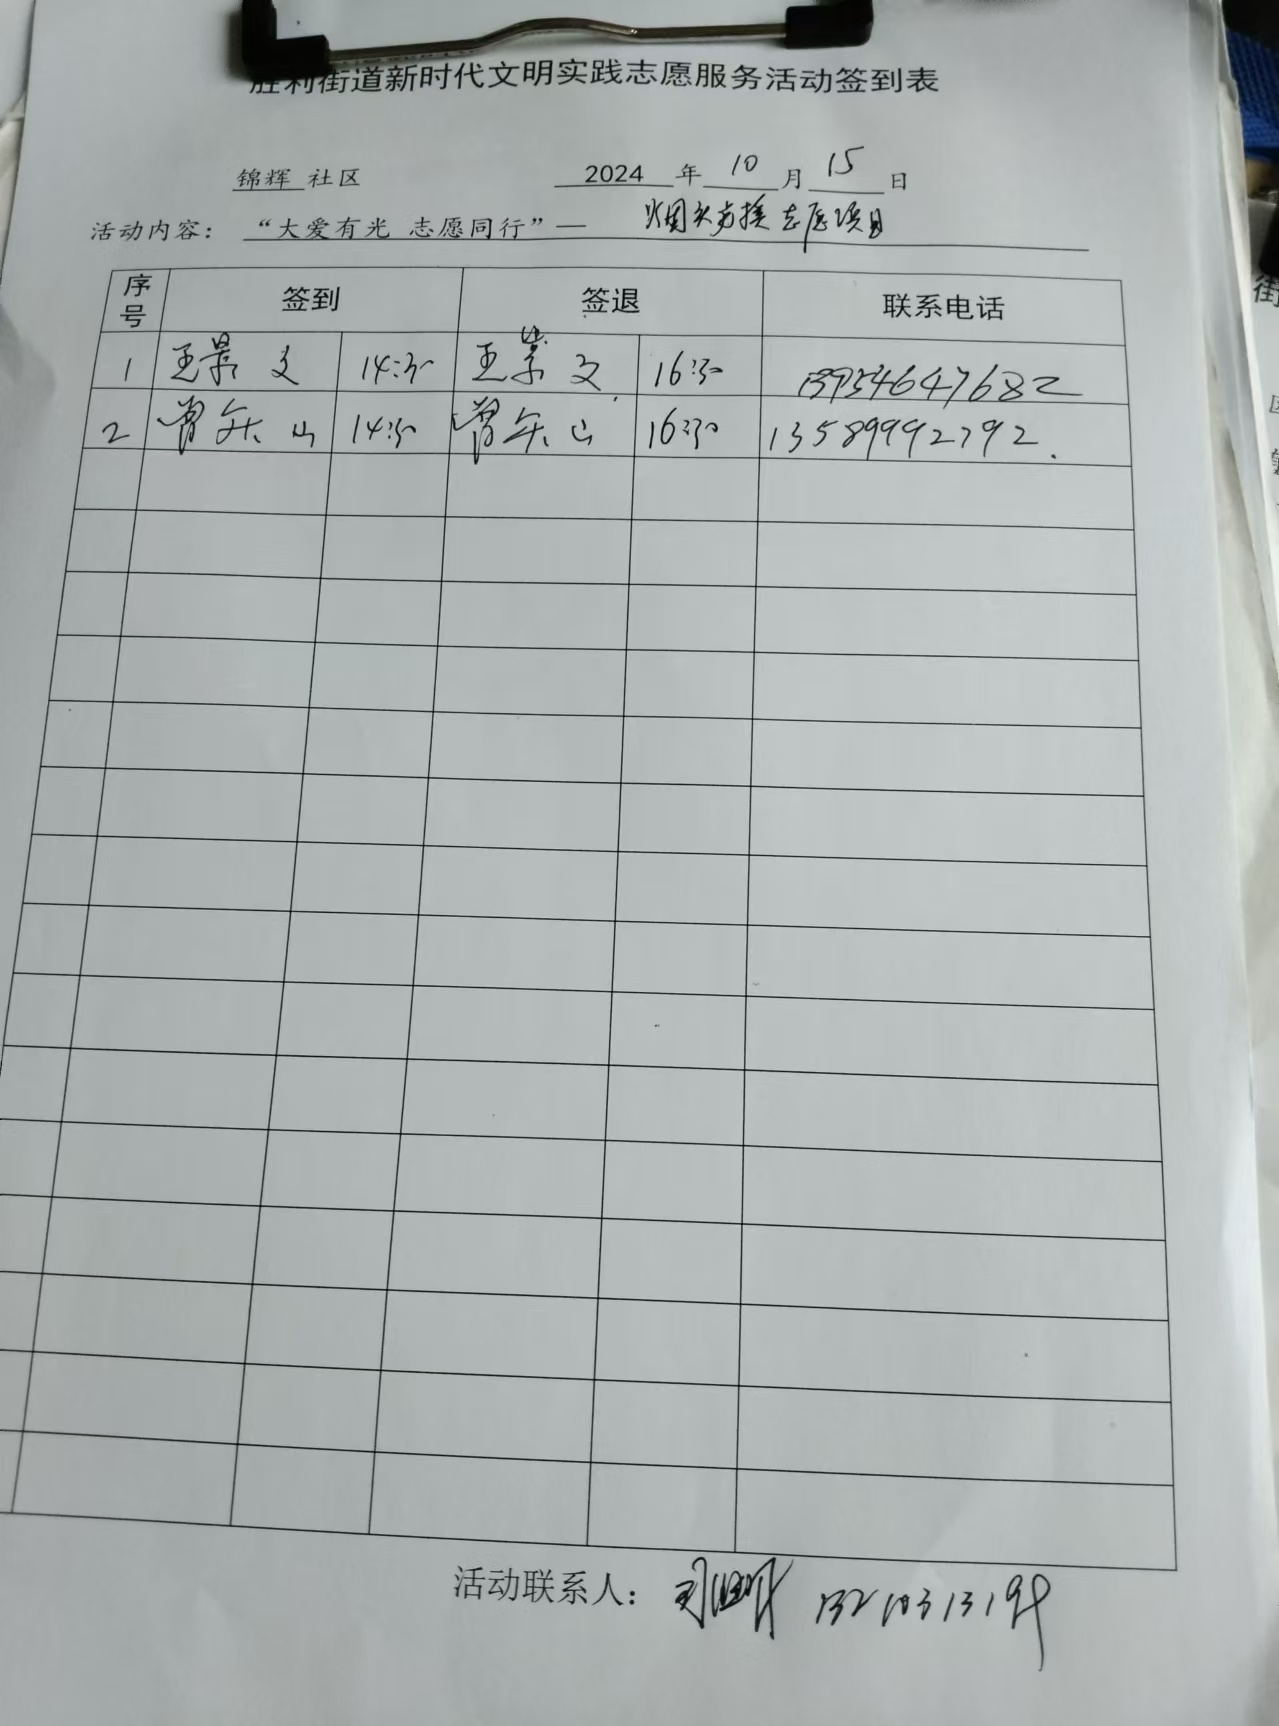 胜利街道新时代文明实践志愿服务活动签到表
锦辉 社区 2024 年 10 月 15 日
活动内容： “大爱有光 志愿同行”— 烟头 志愿项目
序号 签到 签退 联系电话
1 王景文 14:30 王景文 16:30 13954647682
2 山 14:30 山 16:30 13589992792.
活动联系人：
街